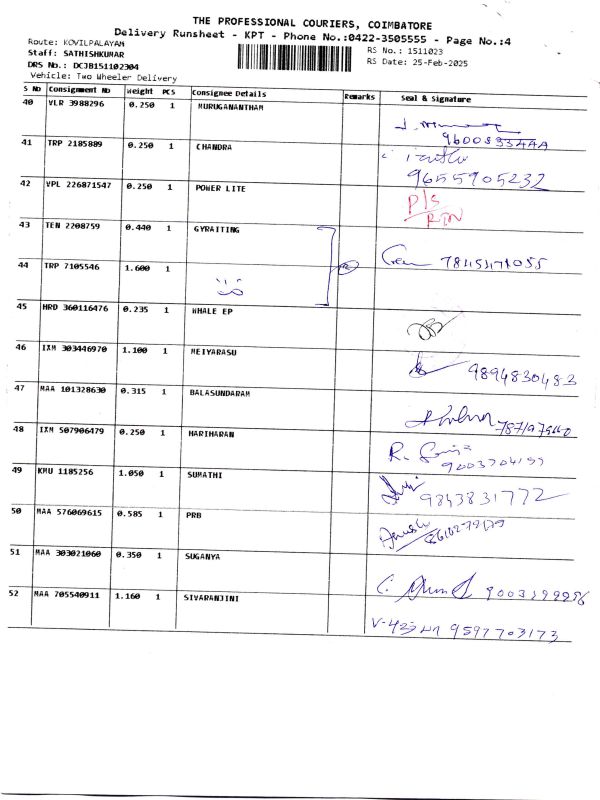 THE PROFESSIONAL COURIERS, COIMBATORE
Delivery Runsheet - KPT - Phone No.:0422-3505555 - Page No.:4
Route: KOVILPALAYAM
Staff: SATHISHKUMAR
DRS No.: DCJB151102304
Vehicle: Two Wheeler Delivery
RS No.: 1511023
RS Date: 25-Feb-2025
S No Consignment No Weight PCS Consignee Details Remarks Seal & Signature
40 VLR 3988296 0.250 1 MURUGANANTHAM
41 TRP 2185889 0.250 1 CHANDRA
9655905232
42 VPL 226871547 0.250 1 POWER LITE
P/S
RTN
43 TEN 2208759 0.440 1 GYRAITING
44 TRP 7105546 1.600 1
45 HRD 360116476 0.235 1 WHALE EP
46 IXM 303446970 1.100 1 MEIYARASU
9894830483
47 MAA 101328630 0.315 1 BALASUNDARAM
48 IXM 507906479 0.250 1 HARIHARAN
49 KMU 1185256 1.050 1 SUMATHI
9843831772
50 MAA 576069615 0.585 1 PRB
51 MAA 303021060 0.350 1 SUGANYA
52 MAA 705540911 1.160 1 SIVARANJINI
9597703173